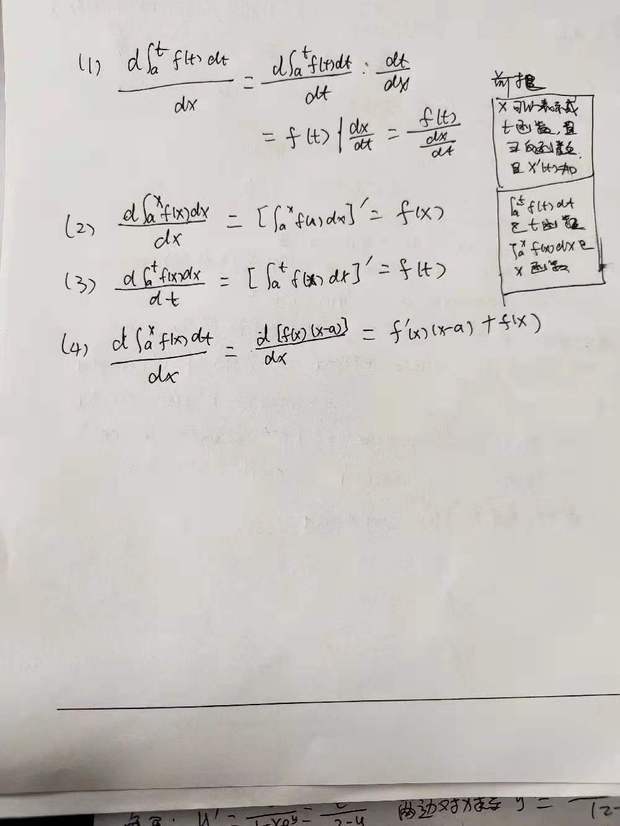 (1) d∫ₐᵗ f(t) dt / dx = d∫ₐᵗ f(t) dt / dt · dt/dx
= f(t) / (dx/dt) = f(t) / (dx/dt)
前提
x 可以表示成
t 函数, 且
可
且 x'(t)≠0
∫ₐᵗ f(t) dt
是 t 函数
∫ₐˣ f(x) dx 是
x 函数
(2) d∫ₐˣ f(x) dx / dx = [∫ₐˣ f(x) dx]' = f(x)
(3) d∫ₐᵗ f(x) dx / dt = [∫ₐᵗ f(x) dt]' = f(t)
(4) d∫ₐˣ f(x) dt / dx = d[f(x)(x-a)] / dx = f'(x)(x-a) + f(x)
两边对x求导 y =